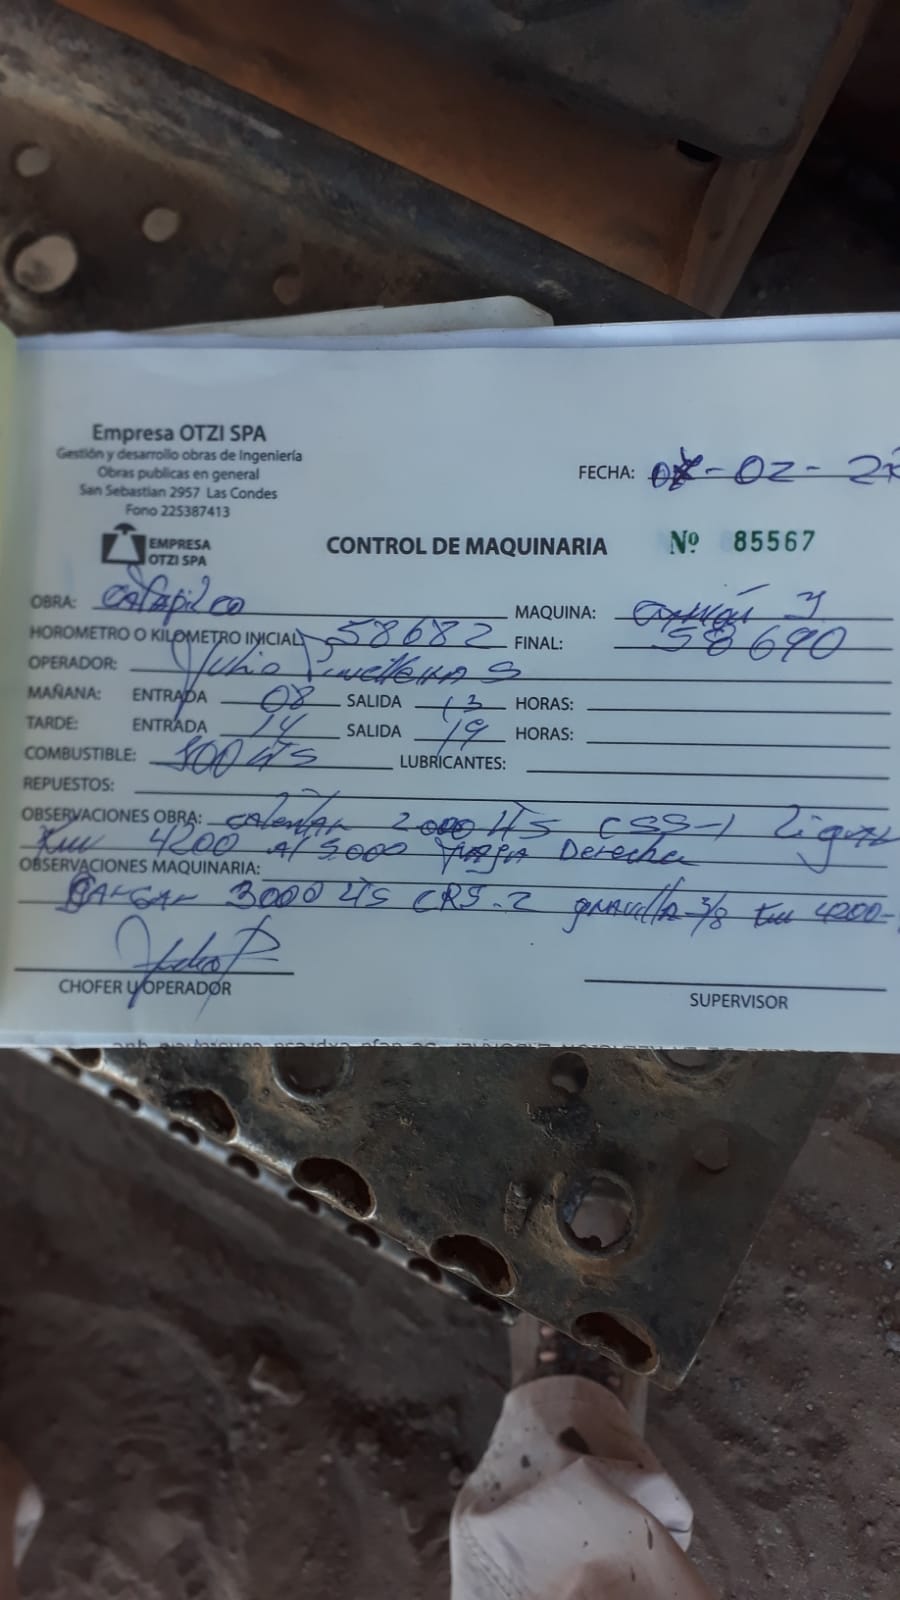 Empresa OTZI SPA
Gestión y desarrollo obras de Ingeniería
Obras publicas en general
San Sebastian 2957 Las Condes
Fono 225387413
EMPRESA
OTZI SPA
FECHA: 07-02-2
CONTROL DE MAQUINARIA Nº 85567
OBRA: Catapilco MAQUINA: Camión
HOROMETRO O KILOMETRO INICIAL 58682 FINAL: 58690
OPERADOR: Julio S
MAÑANA: ENTRADA 08 SALIDA 13 HORAS:
TARDE: ENTRADA 14 SALIDA 19 HORAS:
COMBUSTIBLE: 100 LTS LUBRICANTES:
REPUESTOS:
OBSERVACIONES OBRA: calentar 2000 LTS CSS-1
Km 4200 Al 5000 Derecha
OBSERVACIONES MAQUINARIA:
3000 LTS CRS-2 gravilla 3/8 Km 4200-
CHOFER U OPERADOR
SUPERVISOR